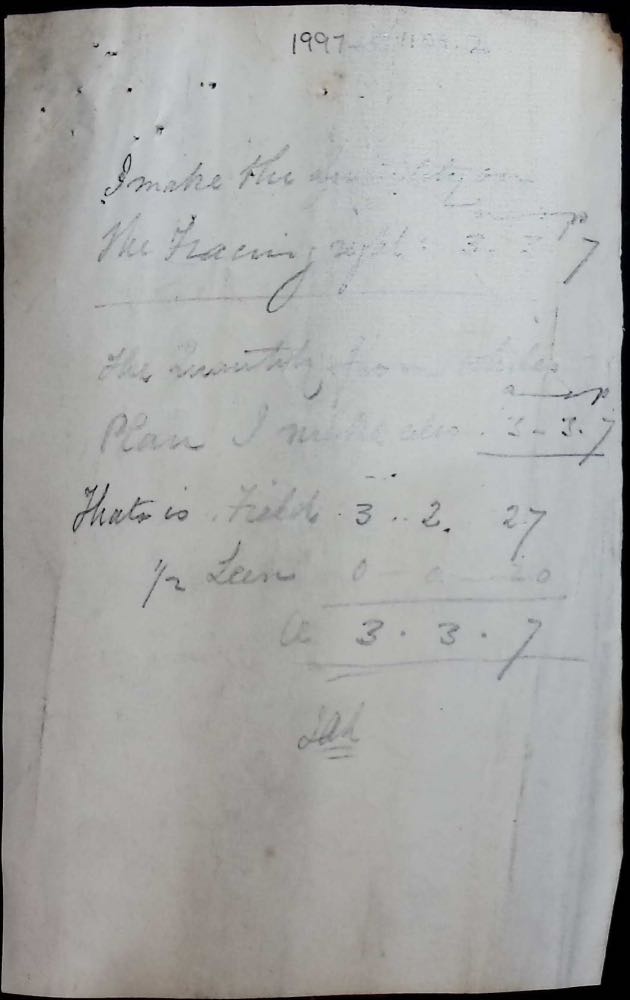 1997
I make the quantity on
a r p
the Tracing right : 3 . 3 . 7
The Quantity from
a r p
Plan I make also . 3 - 3 . 7
Thats is . Field . 3 . . 2 . 27
1/2 0 - 0 - 20
a 3 . 3 . 7